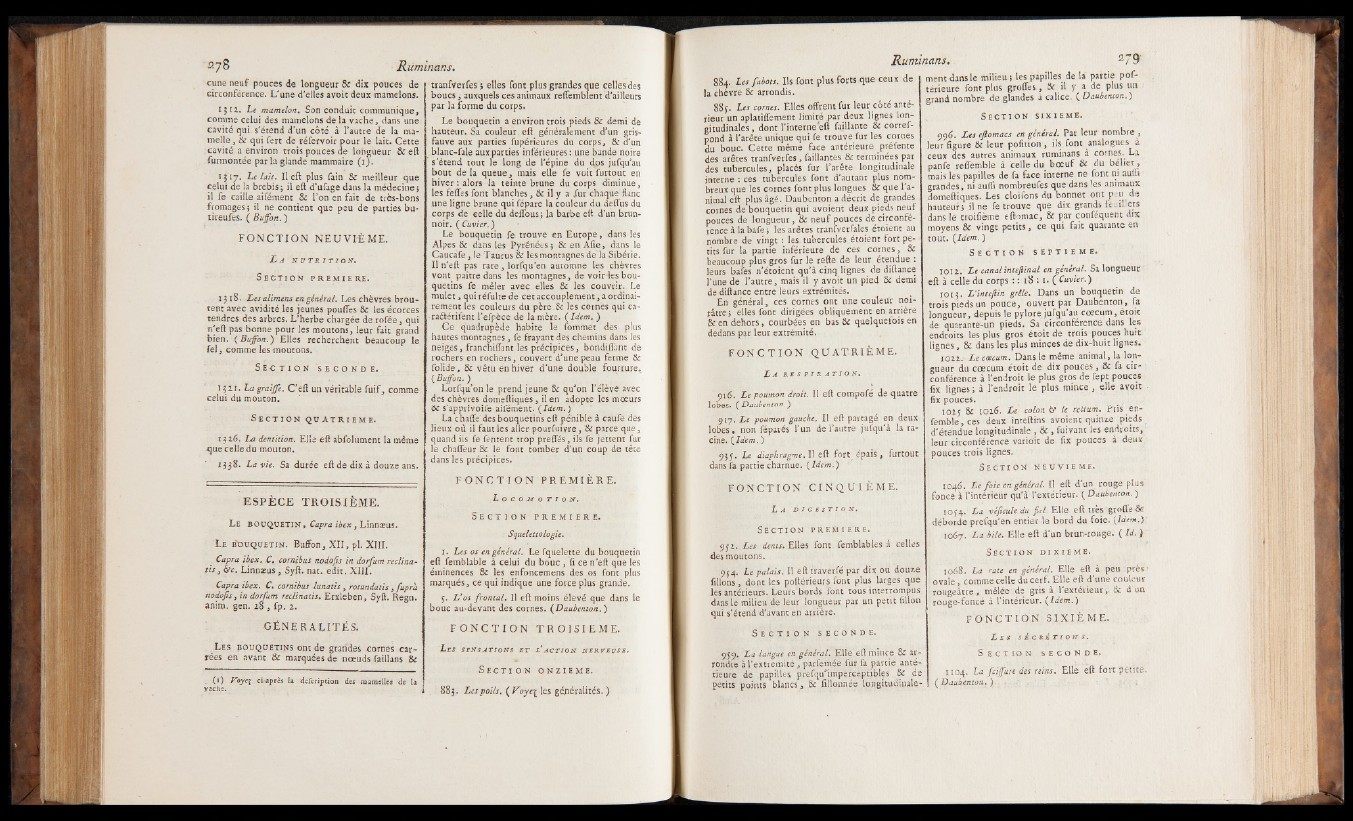 278
Ruminans.
cune neuf pouces de longueur & dix pouces de
circonférence. L'une d'elles avoit deux mamelons.
1312. Le mamelon. Son conduit communique,
comme celui des mamelons de la vache, dans une
cavité qui s'étend d'un côté à l'autre de la ma-
melle, & qui sert de réservoir pour le lait. Cette
cavité a environ trois pouces de longueur & est
surmontée par la glande mammaire (1).
1317. Le lait. Il est plus sain & meilleur que
celui de la brebis; il est d'usage dans la médecine;
il se caille aisément & l'on en fait de très-bons
fromages; il ne contient que peu de parties bu-
tireuses. (Buffon.)
FONCTION NEUVIÈME.
LA NUTRITION.
SECTION PREMIERE.
1318. Les alimens en général. Les chèvres brou-
tent avec avidité les jeunes pousses & les écorces
tendres des arbres. L'herbe chargée de rosée, qui
n'est pas bonne pour les moutons, leur fait grand
bien. (Buffon.) Elles recherchent beaucoup le
sel, comme les moutons.
SECTION SECONDE.
1321. La graisse. C'est un véritable suif, comme
celui du mouton.
SECTION QUATRIEME.
1326. La dentition. Elle est absolument la même
que celle du mouton.
1338. La vie. Sa durée est de dix à douze ans.
ESPÈCE TROISIÈME.
LE BOUQUETIN, Capra ibex, Linnæus.
LE BOUQUETIN. Buffon, XII, pl. XIII.
Capra ibex, C. cornibus nodosis in dorsum reclina-
tis, &c. Linnæus, Syst. nat. edit. XIII.
Capra ibex. C. cornibus lunatis, rotundatis, suprà
nodosis, in dorsum reclinatis. Erxleben, Syst. Regn.
anim. gen. 28, sp. 2.
GÉNÉRALITÉS.
LES BOUQUETINS ont de grandes cornes car-
rées en avant & marquées de nœuds saillans &
(1) Voyez ci-après la description des mamelles de la
vache.
transverses; elles sont plus grandes que celles des
boucs, auxquels ces animaux ressemblent d'ailleurs
par la forme du corps.
Le bouquetin a environ trois pieds & demi de
hauteur. Sa couleur est généralement d'un gris-
fauve aux parties supérieures du corps, & d'un
blanc-sale aux parties inférieures: une bande noire
s'étend tout le long de l'épine du dos jusqu'au
bout de la queue, mais elle se voit surtout en
hiver: alors la teinte brune du corps diminue,
les fesses sont blanches, & il y a sur chaque flanc
une ligne brune qui sépare la couleur du dessus du
corps de celle du dessous; la barbe est d'un brun-
noir. (Cuvier.)
Le bouquetin se trouve en Europe, dans les
Alpes & dans les Pyrénées; & en Asie, dans le
Caucase, le Taurus & les montagnes de la Sibérie.
Il n'est pas rare, lorsqu'en automne les chèvres
vont paître dans les montagnes, de voir les bou-
quetins se mêler avec elles & les couvrir. Le
mulet, qui résulte de cet accouplement, a ordinai-
rement les couleurs du père & les cornes qui ca-
ractérisent l'espèce de la mère. (Idem.)
Ce quadrupède habite le sommet des plus
hautes montagnes, se frayant des chemins dans les
neiges, franchissant les précipices, bondissant de
rochers en rochers, couvert d'une peau ferme &
solide, & vêtu en hiver d'une double fourrure.
(Buffon.)
Lorsqu'on le prend jeune & qu'on l'élève avec
des chèvres domestiques, il en adopte les mœurs
& s'apprivoise aisément. (Idem.)
La chasse des bouquetins est pénible à cause des
lieux où il faut les aller poursuivre, & parce que,
quand ils se sentent trop pressés, ils se jettent sur
le chasseur & le font tomber d'un coup de tête
dans les précipices.
FONCTION PREMIÈRE.
LOCOMOTION.
SECTION PREMIERE.
Squelettologie.
1. Les os en général. Le squelette du bouquetin
est semblable à celui du bouc, si ce n'est que les
éminences & les enfoncemens des os sont plus
marqués, ce qui indique une force plus grande.
5. L'os frontal. Il est moins élevé que dans le
bouc au-devant des cornes. (Daubenton.)
FONCTION TROISIEME.
LES SENSATIONS ET L'ACTION NERVEUSE.
SECTION ONZIEME.
883. Les poils. (Voyez les généralités.)
Ruminans.
279
884. Les sabots. Ils sont plus forts que ceux de
la chèvre & arrondis.
885. Les cornes. Elles offrent sur leur côté anté-
rieur un aplatissement limité par deux lignes lon-
gitudinales, dont l'interne est saillante & corres-
pond à l'arête unique qui se trouve sur les cornes
du bouc. Cette même face antérieure présente
des arêtes transverses, saillantes & terminées par
des tubercules, placés sur l'arête longitudinale
interne: ces tubercules sont d'autant plus nom-
breux que les cornes sont plus longues & que l'a-
nimal est plus âgé. Daubenton a décrit de grandes
cornes de bouquetin qui avoient deux pieds neuf
pouces de longueur, & neuf pouces de circonfé-
rence à la base; les arêtes transversales étoient au
nombre de vingt: les tubercules étoient fort pe-
tits sur la partie inférieure de ces cornes, &
beaucoup plus gros sur le reste de leur étendue:
leurs bases n'étoient qu'à cinq lignes de distance
l'une de l'autre, mais il y avoit un pied & demi
de distance entre leurs extrémités.
En général, ces cornes ont une couleur noi-
râtre; elles sont dirigées obliquement en arrière
& en dehors, courbées en bas & quelquefois en
dedans par leur extrémité.
FONCTION QUATRIÈME.
LA RESPIRATION.
916. Le poumon droit. Il est composé de quatre
lobes. (Daubenton.)
917. Le poumon gauche. Il est partagé en deux
lobes, non séparés l'un de l'autre jusqu'à la ra-
cine. (Idem.)
935. Le diaphragme. Il est fort épais, surtout
dans sa partie charnue. (Idem.)
FONCTION CINQUIÈME.
LA DIGESTION.
SECTION PREMIERE.
952. Les dents. Elles sont semblables à celles
des moutons.
954. Le palais. Il est traversé par dix ou douze
sillons, dont les postérieurs sont plus larges que
les antérieurs. Leurs bords sont tous interrompus
dans le milieu de leur longueur par un petit sillon
qui s'étend d'avant en arrière.
SECTION SECONDE.
959. La langue en général. Elle est mince & ar-
rondie à l'extrémité, parsemée sur sa partie anté-
rieure de papilles presqu'imperceptibles & de
petits points blancs, & sillonnée longitudinale-
ment dans le milieu; les papilles de la partie pos-
térieure sont plus grosses, & il y a de plus un
grand nombre de glandes à calice. (Daubenton.)
SECTION SIXIEME.
996. Les estomacs en général. Par leur nombre,
leur figure & leur position, ils sont analogues à
ceux des autres animaux ruminans à cornes. La
panse ressemble à celle du bœuf & du bélier,
mais les papilles de sa face interne ne sont ni aussi
grandes, ni aussi nombreuses que dans les animaux
domestiques. Les cloisons du bonnet ont peu de
hauteur; il ne se trouve que dix grands feuillets
dans le troisième estomac, & par conséquent dix
moyens & vingt petits, ce qui fait quarante en
tout. (Idem.)
SECTION SEPTIEME.
1012. Le canal intestinal en général. Sa longueur
est à celle du corps :: 18 : 1. (Cuvier.)
1013. L'intestin grêle. Dans un bouquetin de
trois pieds un pouce, ouvert par Daubenton, sa
longueur, depuis le pylore jusqu'au cœcum, étoit
de quarante-un pieds. Sa circonférence dans les
endroits les plus gros étoit de trois pouces huit
lignes, & dans les plus minces de dix-huit lignes.
1022. Le cœcum. Dans le même animal, la lon-
gueur du cœcum étoit de dix pouces, & sa cir-
conférence à l'endroit le plus gros de sept pouces
six lignes; à l'endroit le plus mince, elle avoit
six pouces.
1025 & 1026. Le colon & le rectum. Pris en-
semble, ces deux intestins avoient quinze pieds
d'étendue longitudinale, &, suivant les endroits,
leur circonférence varioit de six pouces à deux
pouces trois lignes.
SECTION NEUVIEME.
1046. Le foie en général. Il est d'un rouge plus
foncé à l'intérieur qu'à l'extérieur. (Daubenton.)
1054. La vésicule du fiel. Elle est très grosse &
déborde presqu'en entier le bord du foie. (Idem.)
1067. La bile. Elle est d'un brun-rouge. (Id.)
SECTION DIXIEME.
1068. La rate en général. Elle est à peu près
ovale, comme celle du cerf. Elle est d'une couleur
rougeâtre, mêlée de gris à l'extérieur, & d'un
rouge-foncé à l'intérieur. (Idem.)
FONCTION SIXIÈME.
LES SÉCRÉTIONS.
SECTION SECONDE.
1104. La scissure des reins. Elle est fort petite.
(Daubenton.)